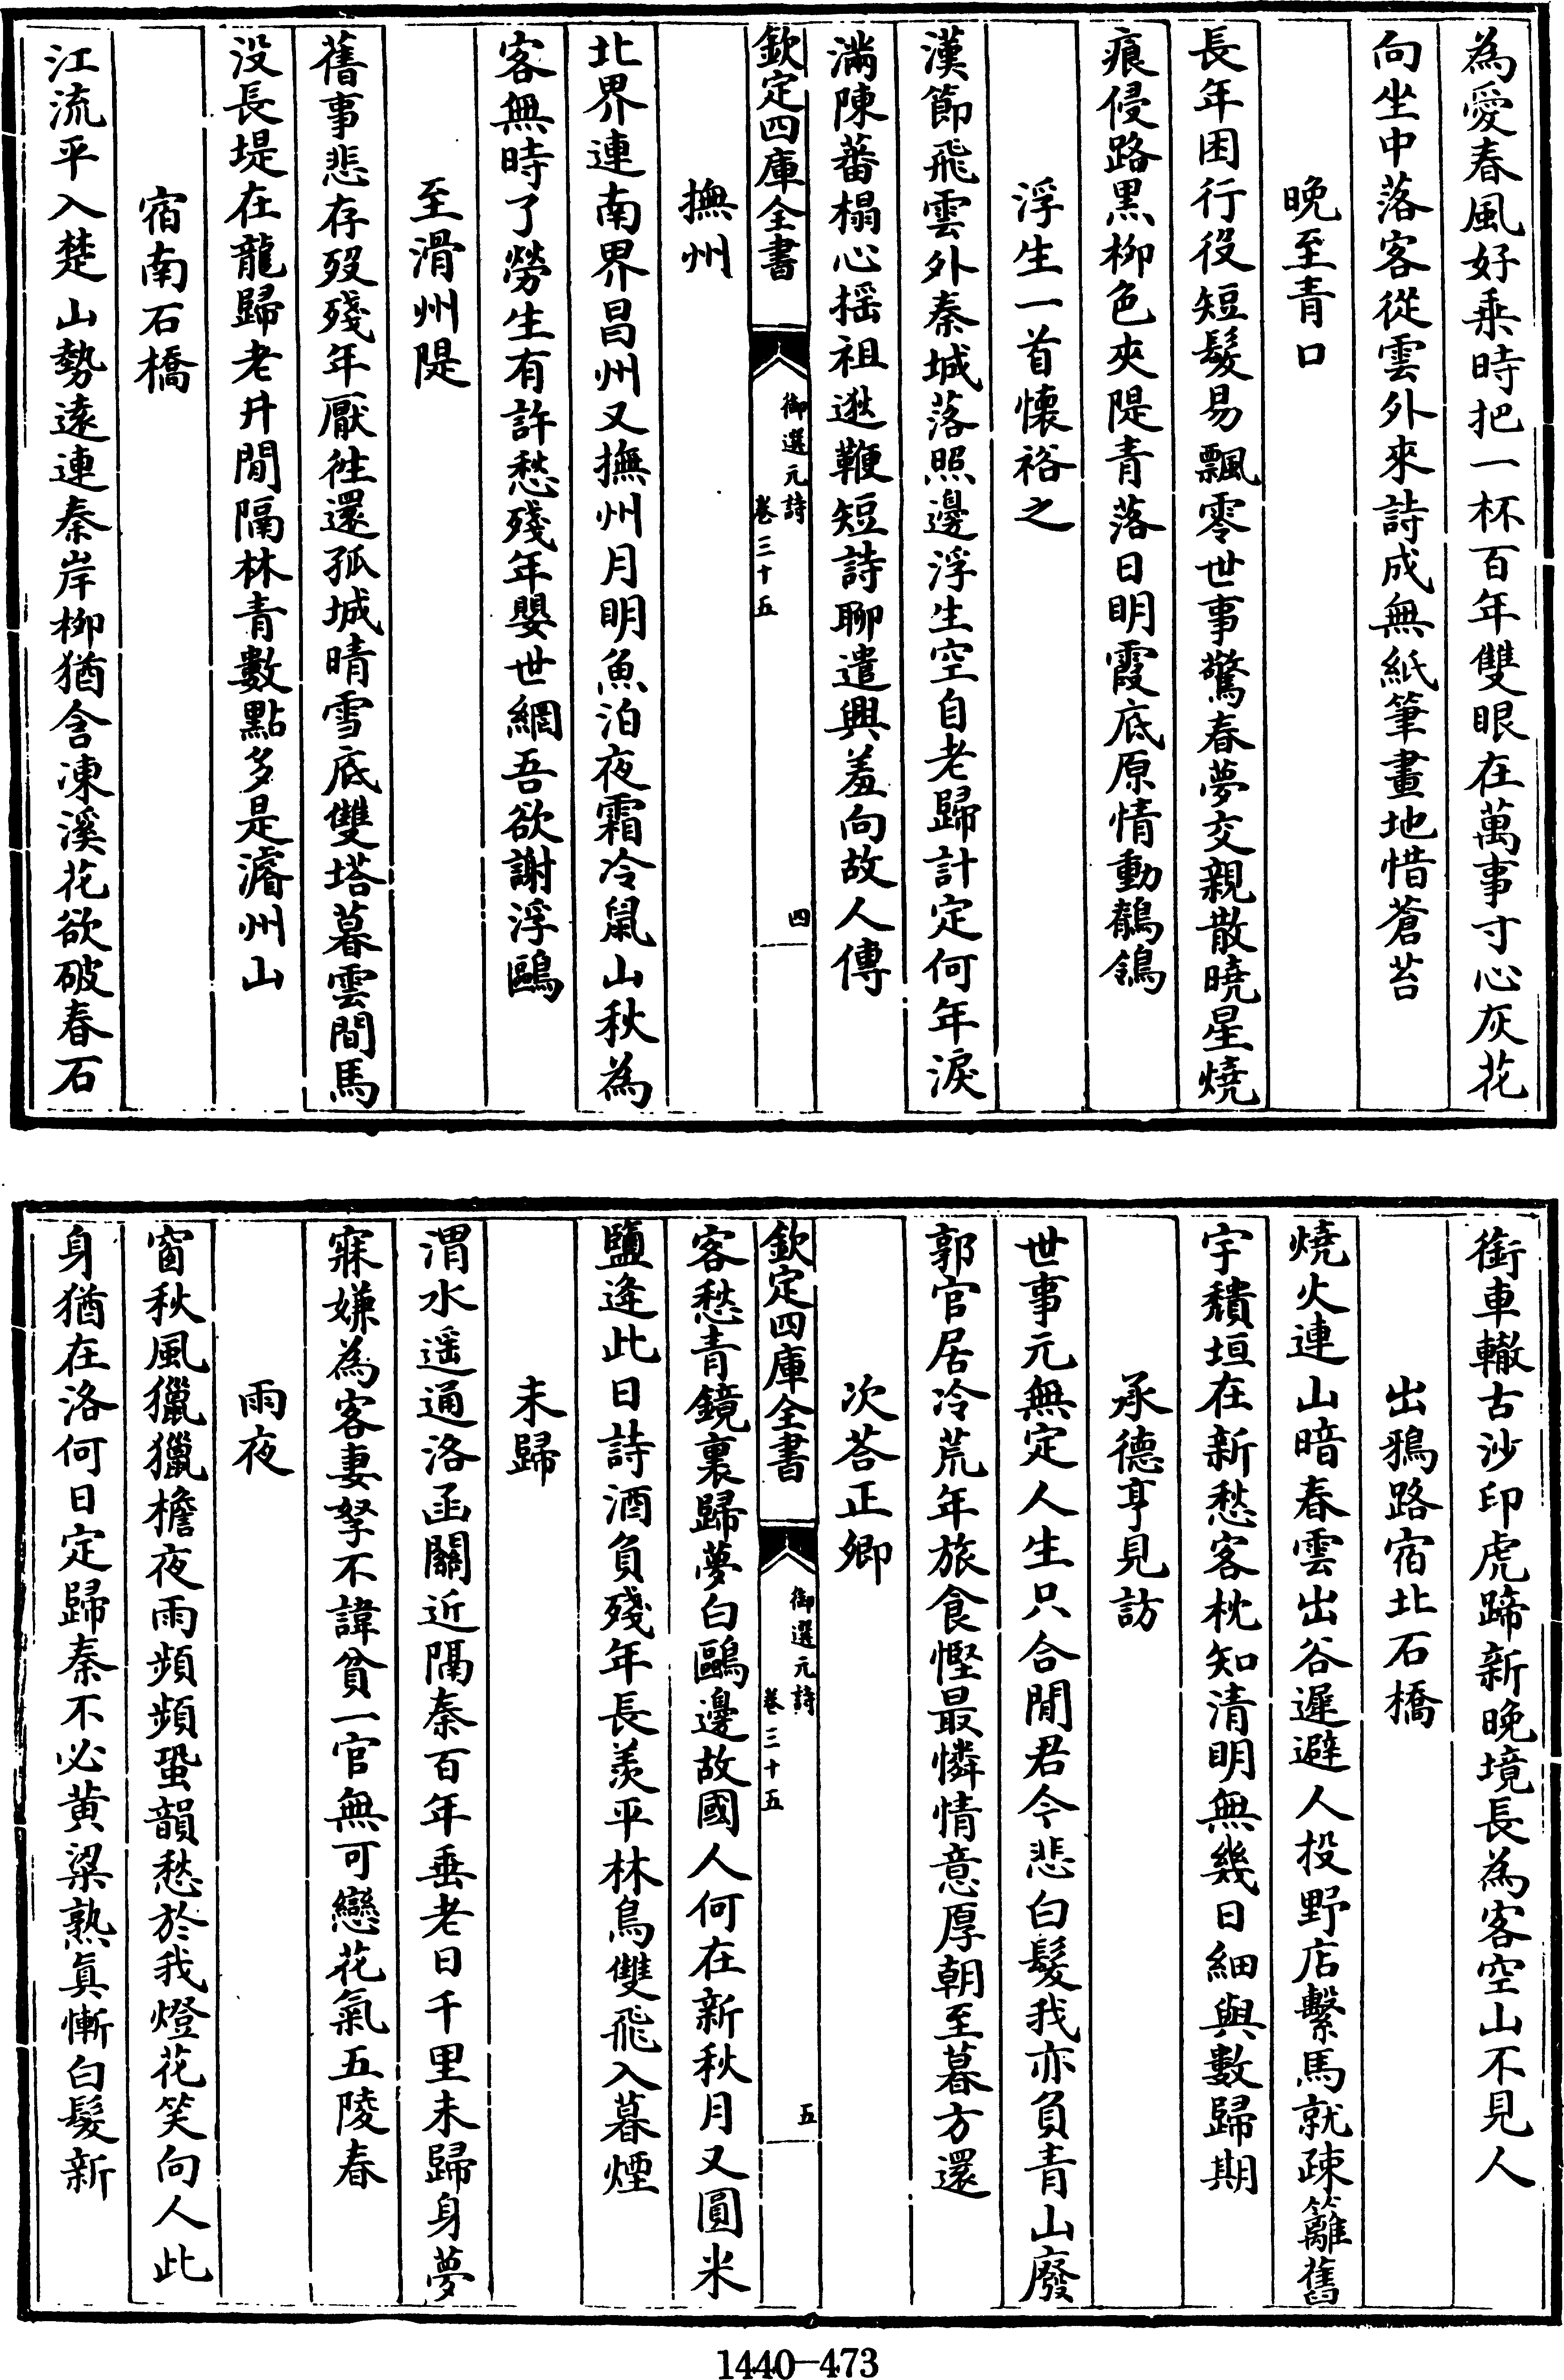 為愛春風好乘時把一杯百年雙眼在萬事寸心灰花
向坐中落客從雲外來詩成無紙筆畫地惜蒼苔
晚至青口
長年困行役短髮易飄零世事驚春夢交親散曉星燒
痕侵路黒柳色夾隄青落日明霞底原情動鶺鴒
浮生一首懷裕之
漢節飛雲外秦城落照邊浮生空自老歸計定何年淚
滿陳蕃榻心摇祖逖鞭短詩聊遣興羞向故人傳
欽定四庫全書
御選元詩
卷三十五
四
撫州
北界連南界昌州又撫州月明魚泊夜霜冷䑕山秋為
客無時了勞生有許愁殘年嬰世網吾欲謝浮鷗
至滑州隄
舊事悲存殁殘年厭徃還孤城晴雪底雙塔暮雲間馬
没長堤在龍歸老井閒隔林青數點多是濬州山
宿南石橋
江流平入楚山勢遠連秦岸柳猶含凍溪花欲破春石
銜車轍古沙印虎蹄新晚境長為客空山不見人
出鴉路宿北石橋
燒火連山暗春雲出谷遲避人投野店繫馬就疎籬舊
宇頽垣在新愁客枕知清明無幾日細與數歸期
承德亨見訪
世事元無定人生只合閒君今悲白髮我亦負青山廢
郭官居冷荒年旅食慳最憐情意厚朝至暮方還
次荅正卿
欽定四庫全書
御選元詩
卷三十五
五
客愁青鏡裏歸夢白鷗邊故國人何在新秋月又圓米
鹽逢此日詩酒負殘年長羨平林鳥雙飛入暮煙
未歸
渭水遥通洛函關近隔秦百年垂老日千里未歸身夢
寐嫌為客妻孥不諱貧一官無可戀花氣五陵春
雨夜
窗秋風獵獵檐夜雨頻頻蛩韻愁於我燈花笑向人此
身猶在洛何日定歸秦不必黄粱熟真慚白髮新
1440-473